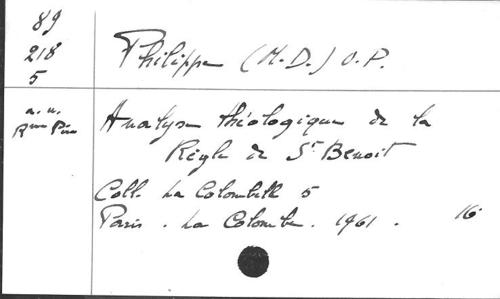 89
218
5
Philippe (M.-D.) O.P.
a. u.
Rme Père
Analyse théologique de la
Règle de St Benoit
Coll. La Colombelle 5
Paris. La Colombe. 1961. 16